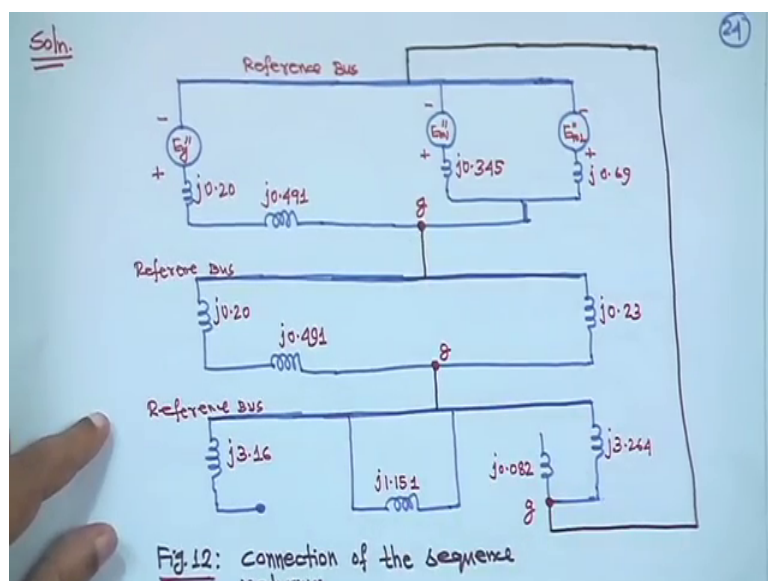 Soln.
21
Reference Bus
-
-
-
Eg"
Em1"
+
+
+
j0.20
j0.491
j0.345
j0.69
g
Referene Bus
j0.20
j0.491
g
j0.23
Reference BUS
j3.16
j1.151
j0.082
j3.264
g
Fig.12: Connection of the sequence